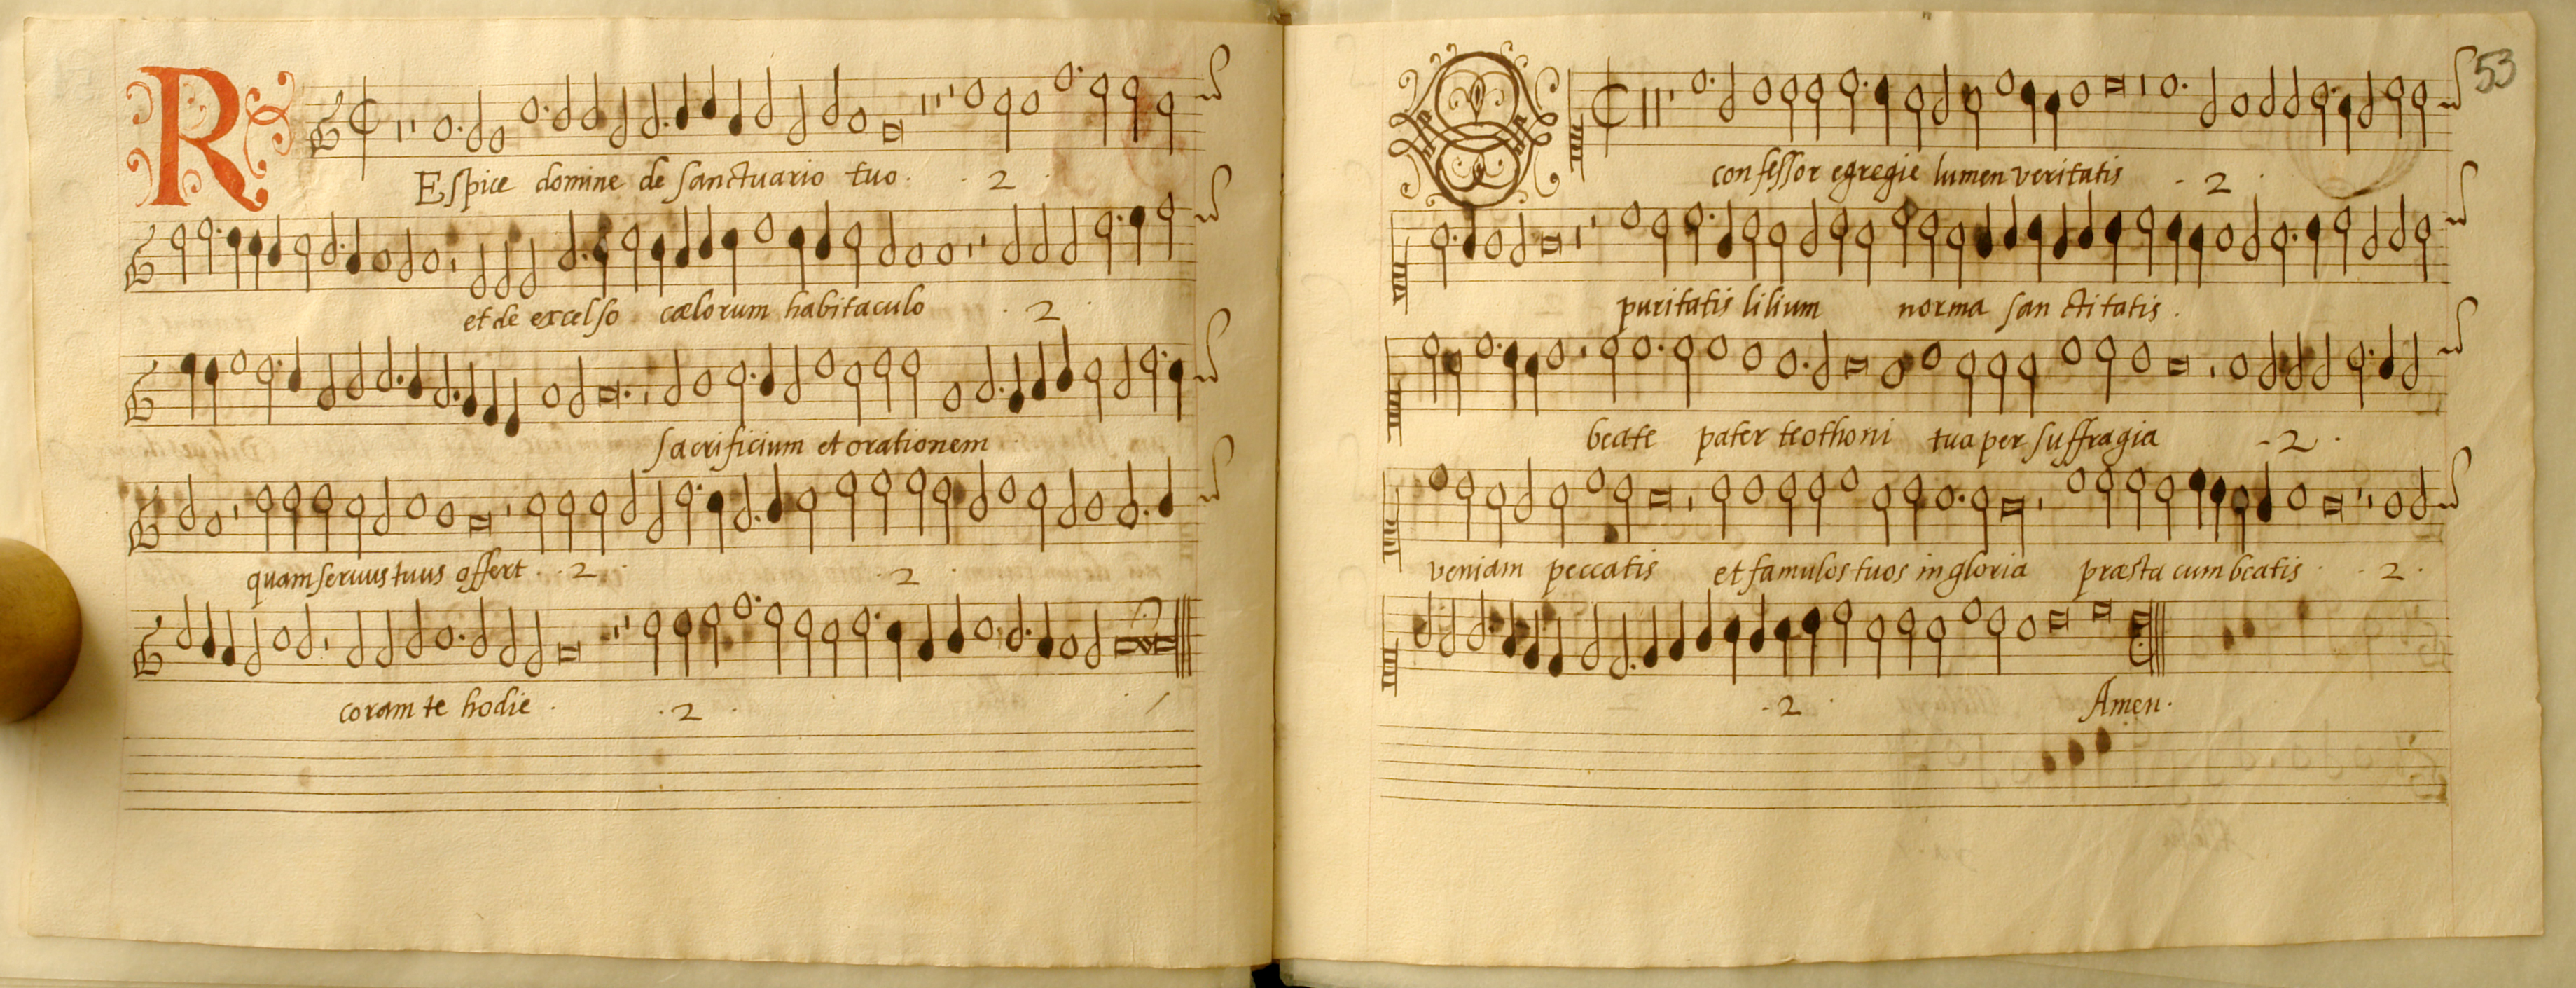 REspice domine de sanctuario tuo . . 2 .
et de excelso cælorum habitaculo . 2 .
sacrificium et orationem .
quam servus tuus offert . . 2 . . 2 .
coram te hodie . . 2 . /
53
O confessor egregie lumen veritatis - 2 .
puritatis lilium norma sanctitatis .
beate pater teothoni tua per suffragia - 2 .
veniam peccatis et famulos tuos in gloria præsta cum beatis . . 2 .
- 2 . Amen .